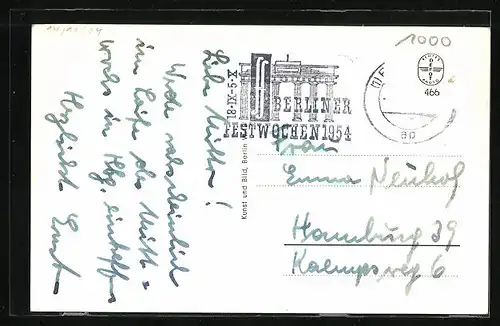 1000
18·IX-5·X
BERLINER
FESTWOCHEN 1954
466
Liebe Mutti!
Werde wahrscheinlich
im Laufe des Mitt-
wochs in Hbg. eintreffen
Herzlichst Ernst
Kunst und Bild, Berlin
Frau
Emma Neuhof
Hamburg 39
6